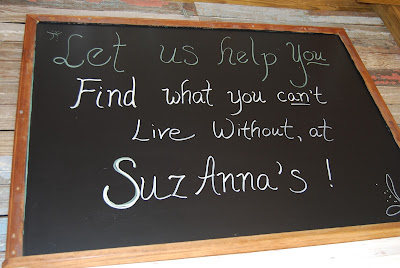 Let us help You
Find what you can't
Live Without, at
Suz Anna's !